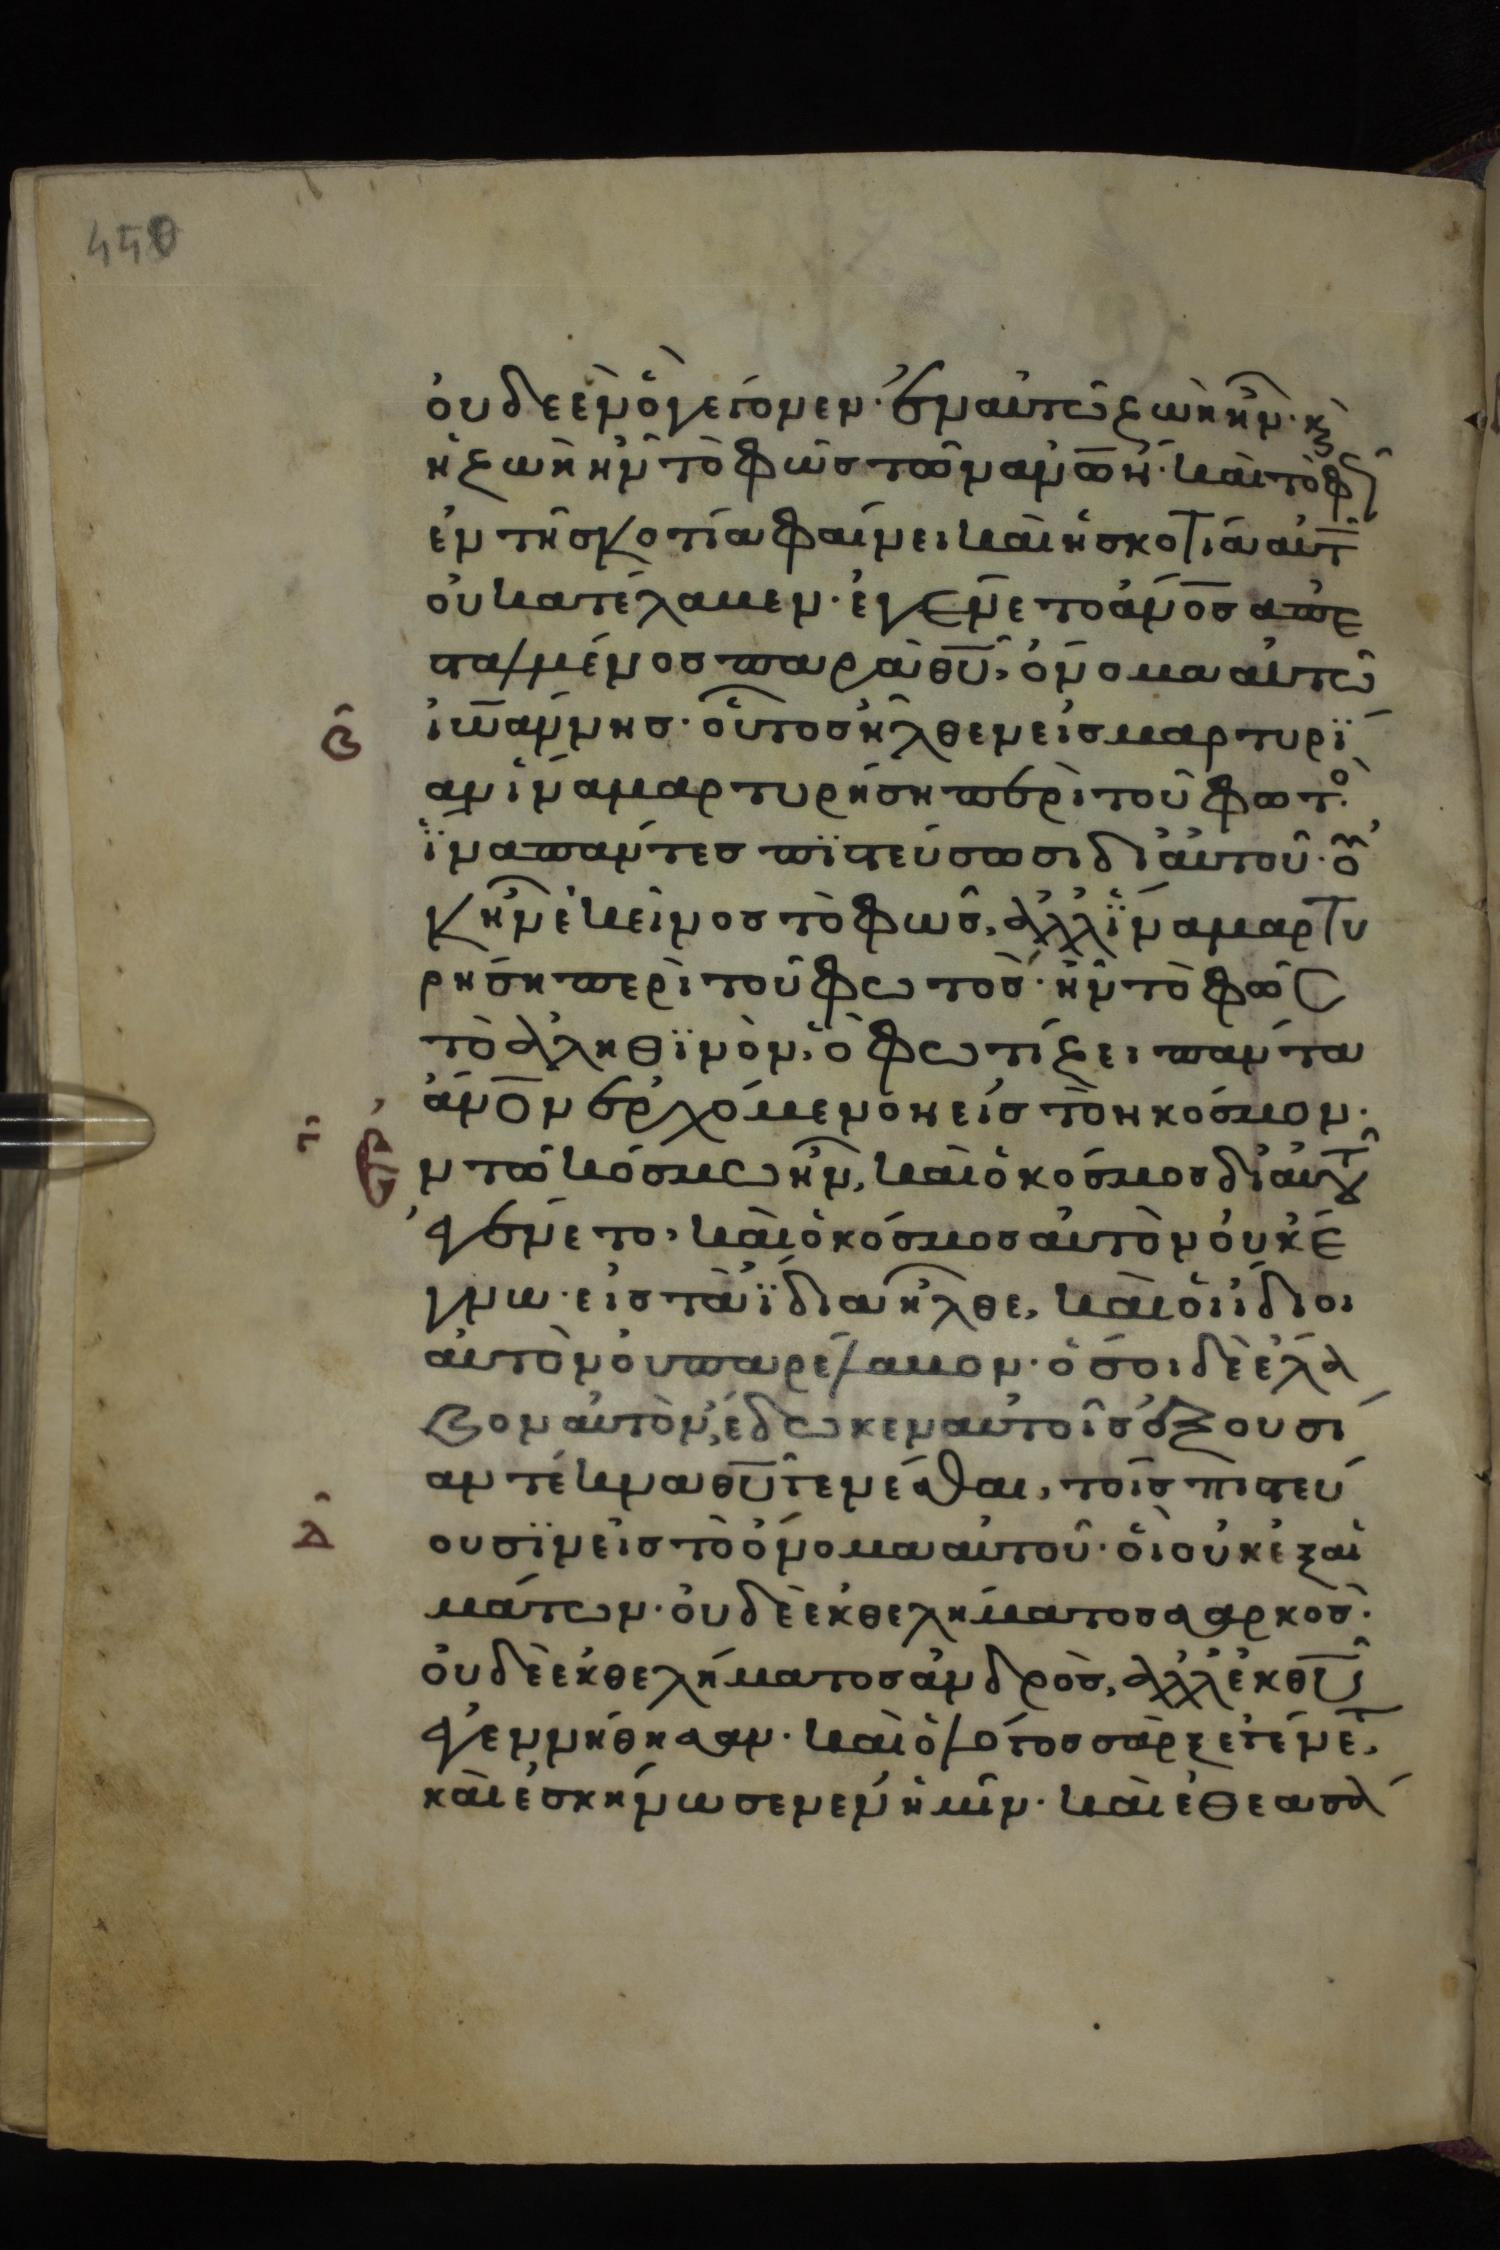 450
ουδε εν ὃ γέγονεν· ἐν αὐτῶ ζωὴ ἦν· κ(αὶ)
ἡ ζωὴ ἦν τὸ φῶσ τῶν ἀν̅ω̅ν· καὶ τὸ φῶ(σ)
ἐν τῆ σκοτία φαίνει καὶ ἡ σκοτία αὐτ
οὐ κατέλαβεν· ἐγένετο ἄν̅ο̅σ ἀπε
σταλμένοσ παρὰ θ̅υ̅, ὄνομα αὐτῶ
β ἰωάννησ· οὗτοσ ἦλθεν εἰσ μαρτυρί
αν ἵνα μαρτυρήση περὶ τοῦ φωτο·
ἵνα πάντεσ πϊστεύσωσι δι αὐτοῦ· οὐ
κ ἦν ἐκεῖνοσ τὸ φῶσ, ἀλλ ἵνα μαρτυ
ρήση περὶ τοῦ φωτόσ· ἦν τὸ φῶσ
τὸ ἀληθϊνὸν, ὃ φωτίζει πάντα
ἄν̅ο̅ν ἐρχόμενον εἰσ τὸν κόσμον·
γ Ἐν τῶ κόσμω ἦν, καὶ ὁ κόσμοσ δι αὐτοῦ
ἐγένετο, καὶ ὁ κόσμοσ αὐτὸν οὐκ ἔ
γνω· εἰσ τὰ ἴδια ἦλθε, καὶ οἱ ἴδιοι
αὐτὸν οὐ παρέλαβον· ὅσοι δὲ ἔλα
βον αὐτὸν, ἔδωκεν αὐτοῖσ ἐξουσί
αν τέκνα θ̅υ̅ γενέσθαι, τοῖσ πιστεύ
δ ουσϊν εἰσ τὸ ὄνομα αὐτοῦ· οἳ οὐκ ἐξ αἱ
μάτων· οὐδὲ ἐκ θελήματοσ σαρκὸσ·
οὐδὲ ἐκ θελήματοσ ἀνδρὸσ, ἀλλ ἐκ θ̅υ̅
ἐγεννήθησαν· καὶ ὁ λόγοσ σὰρξ ἐγένετ,
καὶ ἐσκήνωσεν ἐν ἡμῖν· καὶ ἐθεασά